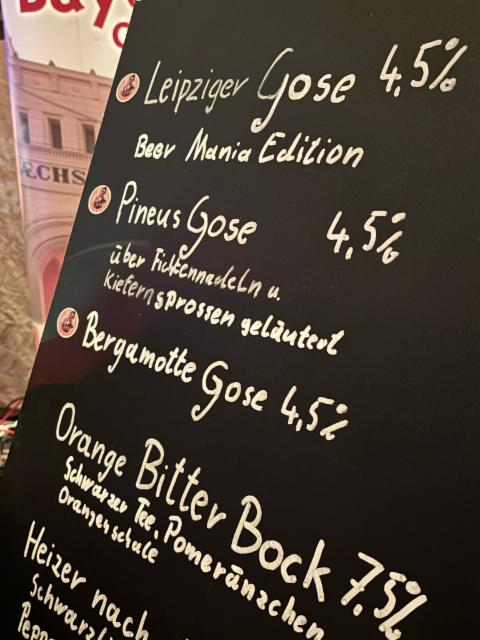 Leipziger Gose 4,5%
Beer Mania Edition
Pineus Gose 4,5%
über Fichtennadeln u.
Kiefernsprossen geläutert
Bergamotte Gose 4,5%
Orange Bitter Bock 7,5%
Schwarzer Tee, Pomeränzchen
Orangenschale
Heizer nach